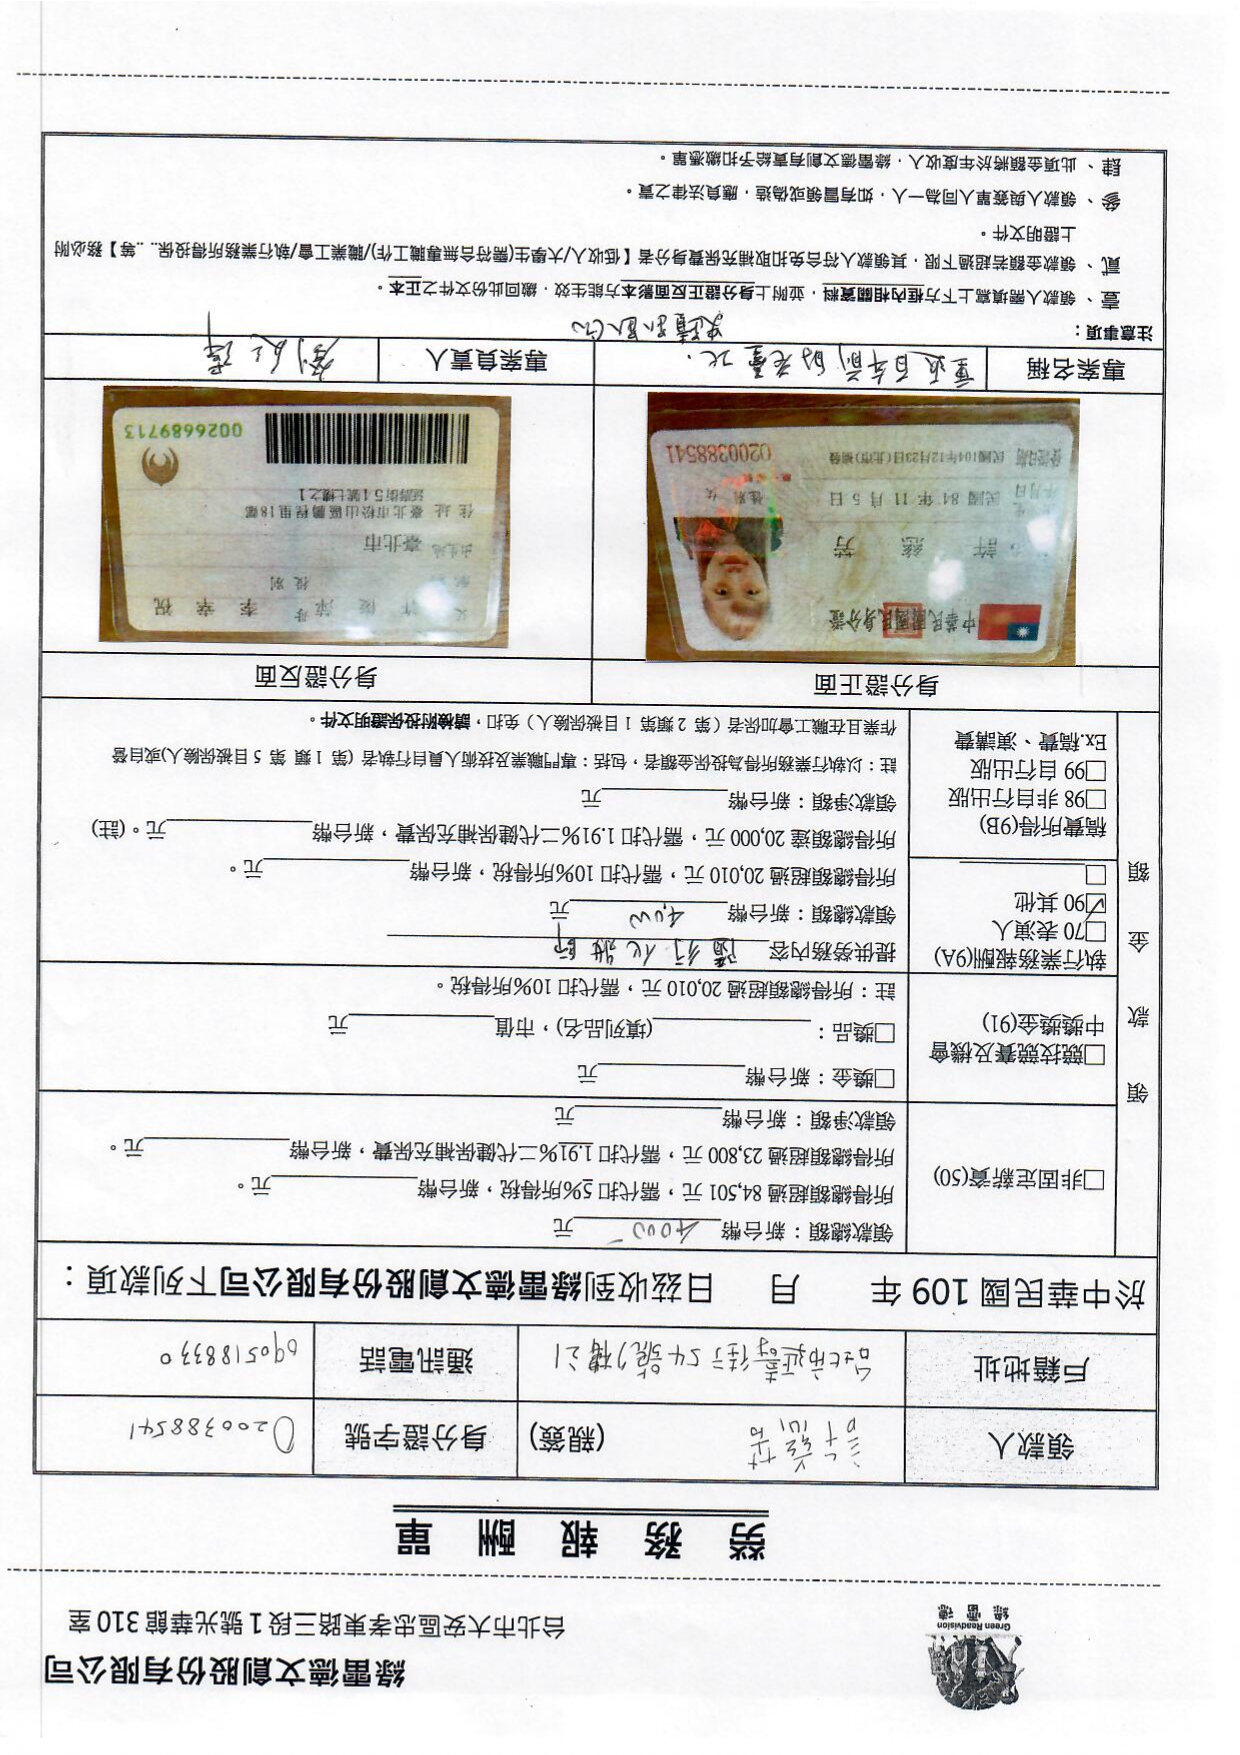 Green Readvision
綠雷德
綠雷德文創股份有限公司
台北市大安區忠孝東路三段1號光華館310室
勞務報酬單
領款人 許慈芳 (親簽) 身分證字號 O200388541
戶籍地址 台北市延壽街54號7樓之1 通訊電話 0905188330
於中華民國 109 年 月 日茲收到綠雷德文創股份有限公司下列款項：
領款金額
□非固定薪資(50)
領款總額：新台幣 4000- 元
所得總額超過 84,501 元，需代扣 5%所得稅，新台幣____元。
所得總額超過 23,800 元，需代扣 1.91%二代健保補充保費，新台幣____元。
領款淨額：新台幣____元
□競技競賽及機會
中獎獎金(91)
□獎金：新台幣____元
□獎品：____(填列品名)，市值____元
註：所得總額超過 20,010 元，需代扣 10%所得稅。
執行業務報酬(9A)
□70 表演人
☑90 其他
□____
稿費所得(9B)
□98 非自行出版
□99 自行出版
Ex.稿費、演講費
提供勞務內容 隨行化妝師
領款總額：新台幣 4,000 元
所得總額超過 20,010 元，需代扣 10%所得稅，新台幣____元。
所得總額達 20,000 元，需代扣 1.91%二代健保補充保費，新台幣____元。(註)
領款淨額：新台幣____元
註：以執行業務所得為投保金額者，包括：專門職業及技術人員自行執者 (第 1 類 第 5 目被保險人)或自營
作業且在職工會加保者（第 2 類第 1 目被保險人）免扣，請檢附投保證明文件。
身分證正面 身分證反面
中華民國國民身分證
許慈芳
民國 84 年 11 月 5 日
性別 女
發證日期 民國104年12月23日(北市)補發
O200388541
父 許俊萍 母 李幸祝
役別
出生地 臺北市
住址 臺北市松山區鵬程里18鄰
延壽街54號七樓之1
0026689713
專案名稱 重返百年前的老臺北.
史蹟趴趴
專案負責人
注意事項：
壹、領款人需填寫上下方框內相關資料，並附上身分證正反面影本方能生效，繳回此份文件之正本。
貳、領款金額若超過下限，其領款人符合免扣取補充保費身分者【低收入/大學生(需符合無專職工作)/職業工會/執行業務所得投保.. ..等】務必附
上證明文件。
參、領款人與簽單人同為一人，如有冒領或偽造，應負法律之責。
肆、此項金額將於年度收入，綠雷德文創有責給予扣繳憑單。